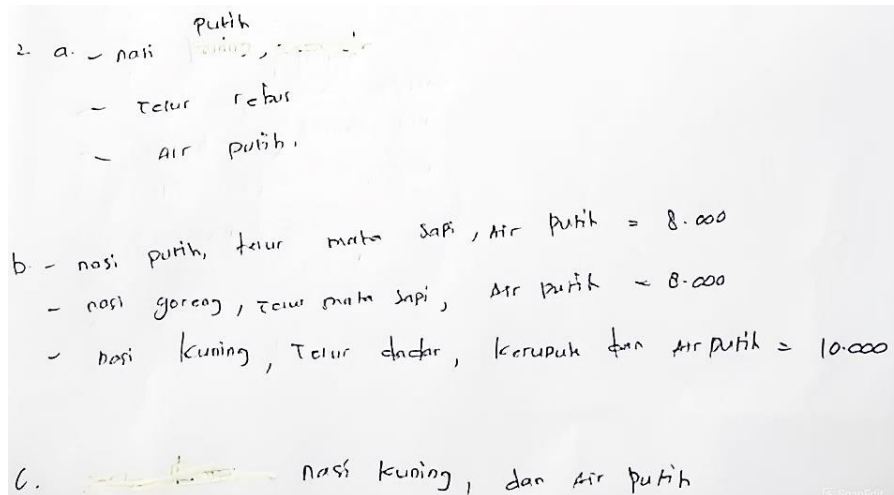 2. a. - nasi putih
- Telur rebus
- Air putih.
b. - nasi putih, telur mata sapi, Air putih = 8.000
- nasi goreng, Telur mata sapi, Air putih = 8.000
- nasi kuning, Telur dadar, kerupuk dan Air putih = 10.000
C. nasi kuning, dan Air putih